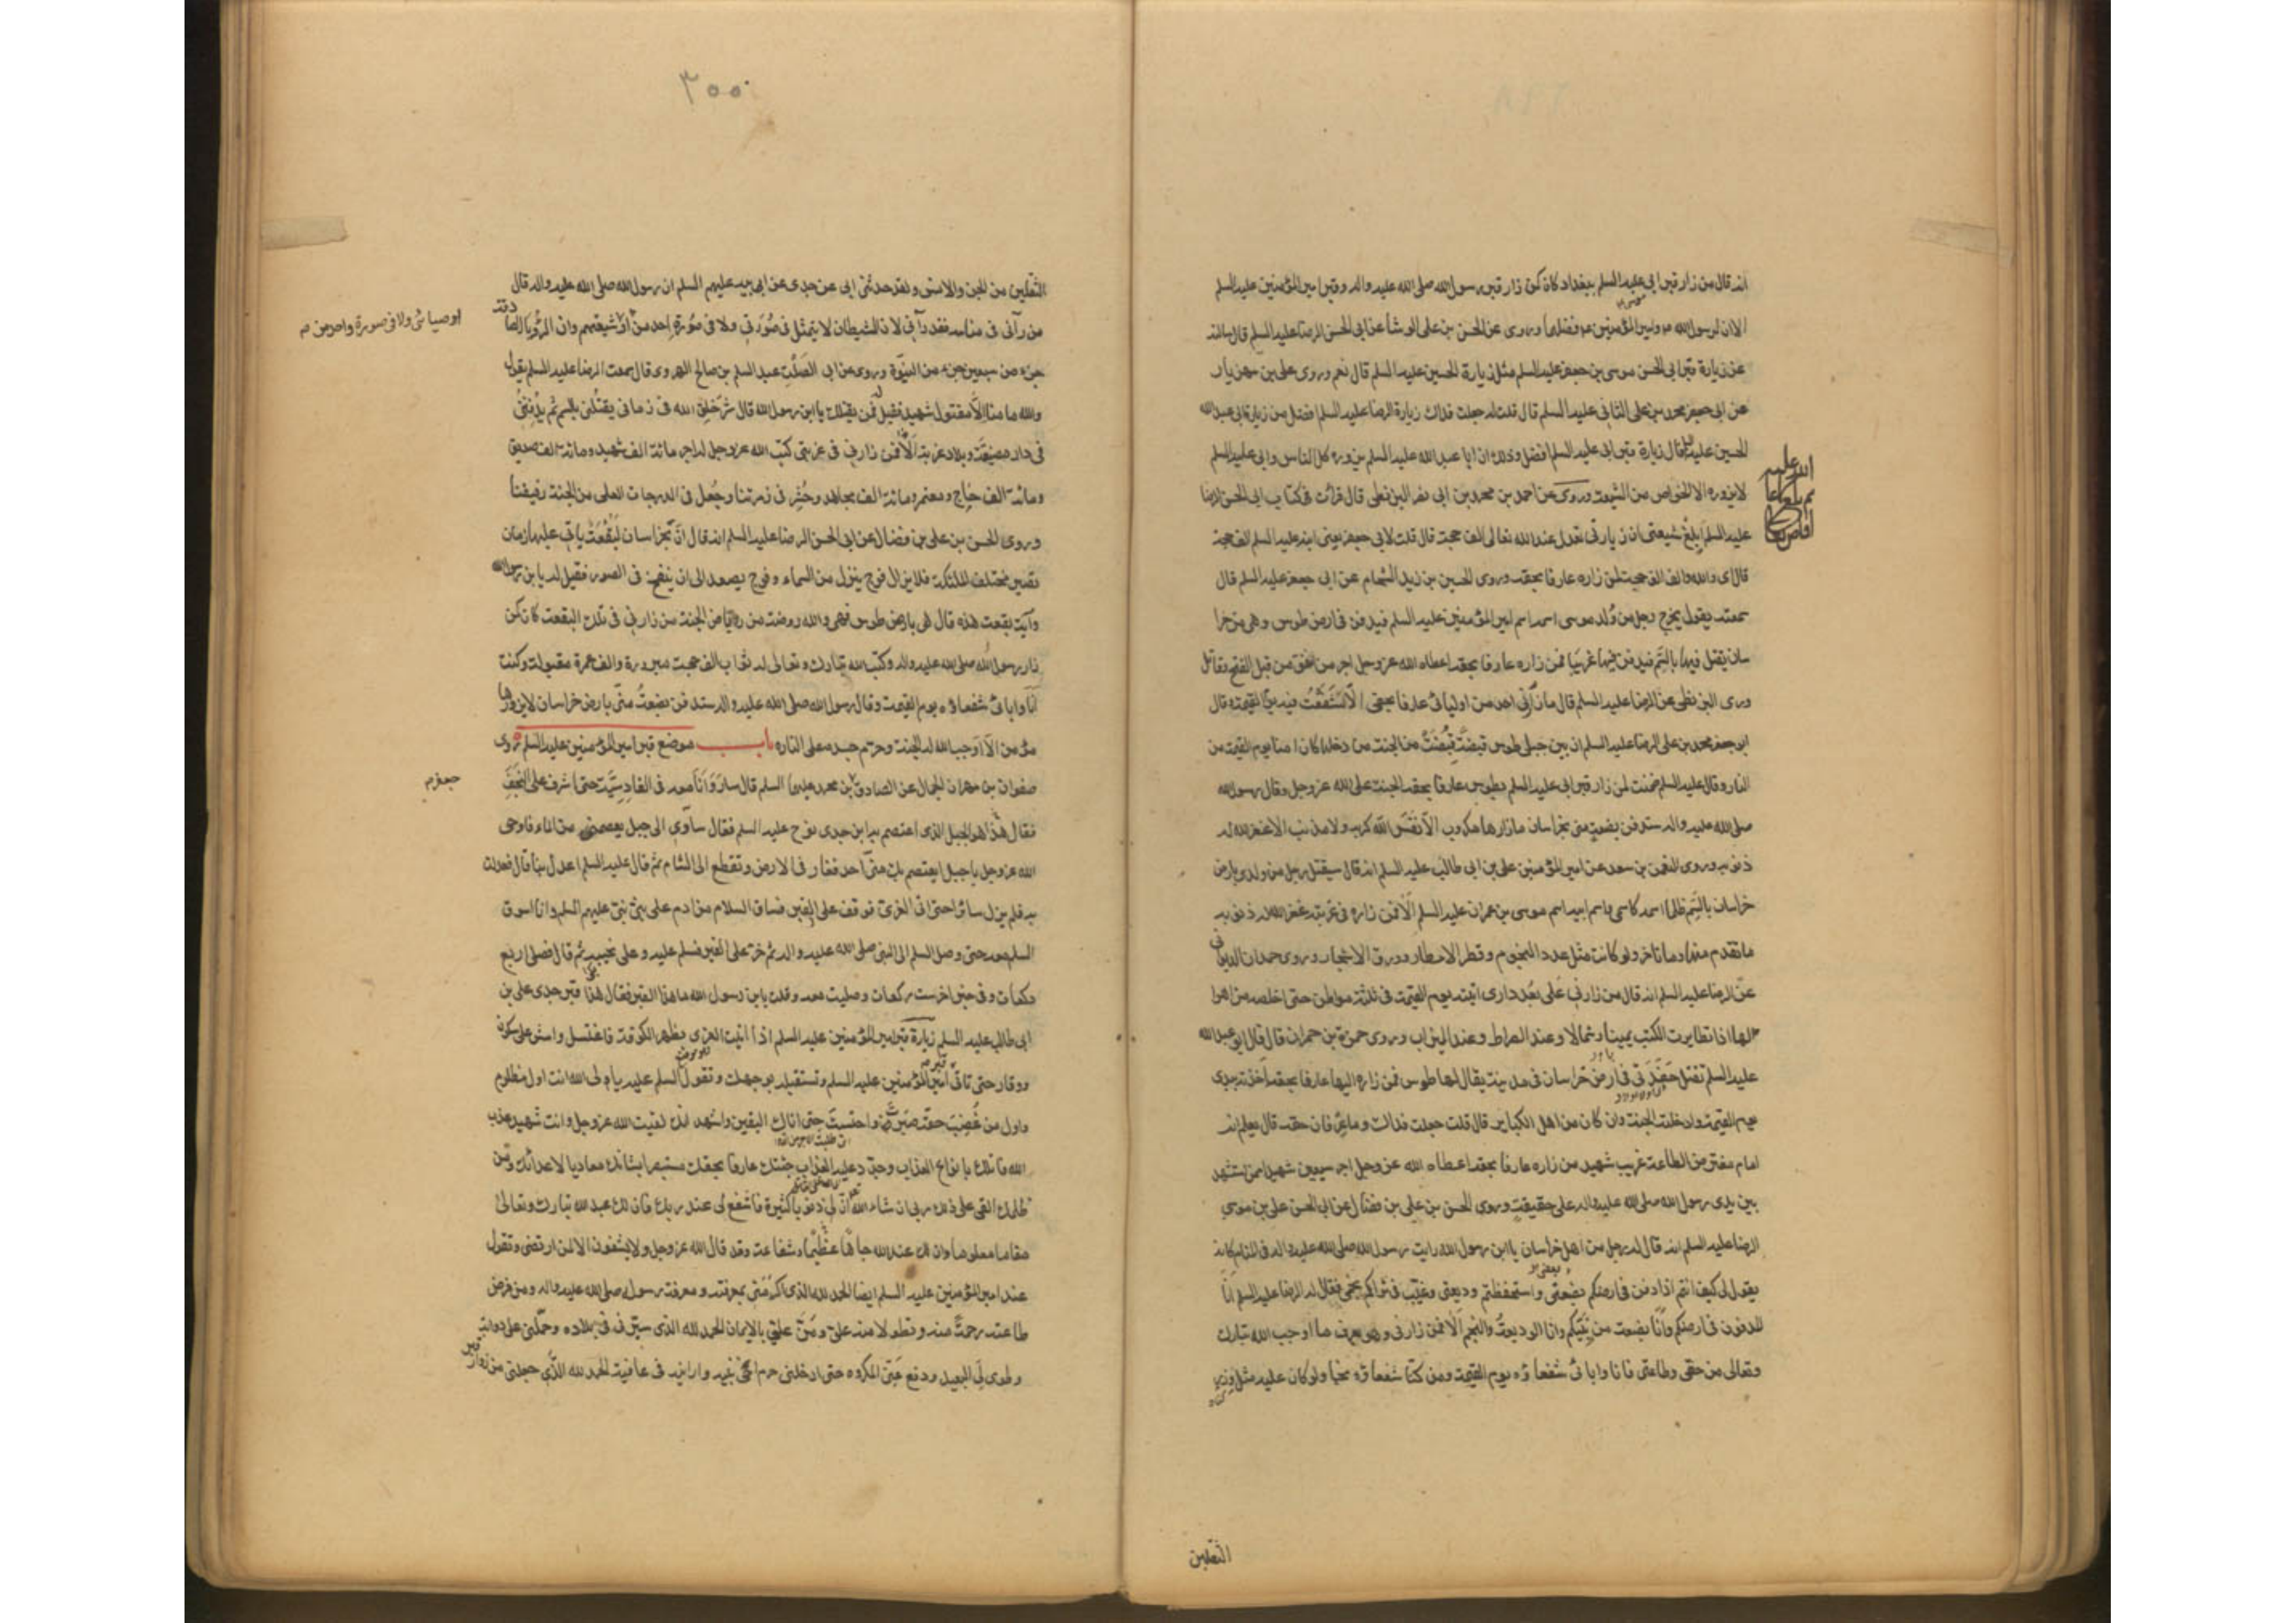 انه قال من زار قبر ابي عليه السلم ببغداد كان كمن زار قبر رسول الله صلى الله عليه واله وقبر امير المؤمنين عليه السلم
الا ان لرسول الله ولامير المؤمنين فضلهما وروى عن الحسن بن على الوشا عن ابى الحسن الرضا عليه السلم قال سالته
عن زيارة قبر ابى الحسن موسى بن جعفر عليه السلم مثل زيارة الحسين عليه السلم قال نعم وروى على بن مهزيار
عن ابى جعفر محمد بن على الثانى عليه السلم قال قلت له جعلت فداك زيارة الرضا عليه السلم افضل من زيارة ابى عبد الله
الحسين عليه السلم قال زيارة قبر ابى عليه السلم افضل وذلك ان ابا عبد الله عليه السلم يزوره كل الناس وابى عليه السلم
لا يزوره الا الخواص من الشيعة وروى عن احمد بن محمد بن ابى نصر البزنطى قال قرات فى كتاب ابى الحسن الرضا
عليه السلم ابلغ شيعتى ان زيارتى تعدل عند الله تعالى الف حجة قال قلت لابى جعفر يعنى ابنه عليه السلم الف حجة
قال اى والله والف الف حجة لمن زاره عارفا بحقه وروى الحسين بن زيد الشحام عن ابى جعفر عليه السلم قال
سمعته يقول يخرج رجل من ولد موسى اسمه اسم امير المؤمنين عليه السلم فيدفن فى ارض طوس وهى من خرا
سان يقتل فيها بالسم فيدفن فيها غريبا فمن زاره عارفا بحقه اعطاه الله عز وجل اجر من انفق من قبل الفتح وقاتل
وروى البزنطى عن الرضا عليه السلم قال ما زارنى احد من اوليائى عارفا بحقى الا تشفعت فيه يوم القيمة وقال
ابو جعفر محمد بن على الرضا عليه السلم ان بين جبلى طوس قبضة قبضت من الجنة من دخلها كان امنا يوم القيمة من
النار وقال عليه السلم ضمنت لمن زار قبر ابى عليه السلم بطوس عارفا بحقه الجنة على الله عز وجل وقال رسول الله
صلى الله عليه واله ستدفن بضعة منى بخراسان ما زارها مكروب الا نفس الله كربه ولا مذنب الا غفر الله له
ذنوبه وروى النعمن بن سعد عن امير المؤمنين على بن ابى طالب عليه السلم انه قال سيقتل رجل من ولدى بارض
خراسان بالسم ظلما اسمه كاسمى واسم ابيه اسم موسى بن عمران عليه السلم الا فمن زاره فى غربته غفر الله له ذنوبه
ما تقدم منها وما تاخر ولو كانت مثل عدد النجوم وقطر الامطار وورق الاشجار وروى حمدان الديوانى
عن الرضا عليه السلم انه قال من زارنى على بعد دارى اتيته يوم القيمة فى ثلثة مواطن حتى اخلصه من اهوا
لها اذا تطايرت الكتب يمينا وشمالا وعند الصراط وعند الميزان وروى حمزة بن حمران قال قال ابو عبد الله
عليه السلم تقتل حفدتى فى ارض خراسان فى مدينة يقال لها طوس فمن زاره اليها عارفا بحقه اخذته بيدى
يوم القيمة وادخلته الجنة وان كان من اهل الكباير قال قلت جعلت فداك وما عرفان حقه قال يعلم انه
امام مفترض الطاعة غريب شهيد من زاره عارفا بحقه اعطاه الله عز وجل اجر سبعين شهيدا ممن استشهد
بين يدى رسول الله صلى الله عليه واله على حقيقة وروى الحسن بن على بن فضال عن ابى الحسن على بن موسى
الرضا عليه السلم انه قال له رجل من اهل خراسان يا ابن رسول الله رايت رسول الله صلى الله عليه واله فى المنام كانه
يقول لى كيف انتم اذا دفن فى ارضكم بضعتى واستحفظتم وديعتى وغيب فى ثراكم نجمى فقال له الرضا عليه السلم انا
المدفون فى ارضكم وانا بضعة من نبيكم وانا الوديعة والنجم الا فمن زارنى وهو يعرف ما اوجب الله تبارك
وتعالى من حقى وطاعتى فانا وابائى شفعاؤه يوم القيمة ومن كنا شفعاؤه نجا ولو كان عليه مثل وزر
الثقلين
٣٠٠
الثقلين من الجن والانس ولقد حدثنى ابى عن جدى عن ابيه عليهم السلم ان رسول الله صلى الله عليه واله قال
من رآنى فى منامه فقد رآنى لان الشيطان لا يتمثل فى صورتى ولا فى صورة احد من شيعتهم وان الرؤيا الصادقة
اوصيائى ولا فى صورة واحد من
جزء من سبعين جزء من النبوة وروى عن ابى الصلت عبد السلم بن صالح الهروى قال سمعت الرضا عليه السلم يقول
والله ما منا الا مقتول شهيد فقيل له فمن يقتلك يا ابن رسول الله قال شر خلق الله فى زمانى يقتلنى بالسم ثم يدفننى
فى دار مضيعة وبلاد غربة الا فمن زارنى فى غربتى كتب الله عز وجل له اجر مائة الف شهيد ومائة الف صديق
ومائة الف حاج ومعتمر ومائة الف مجاهد وحشر فى زمرتنا وجعل فى الدرجات العلى من الجنة رفيقنا
وروى الحسن بن على بن فضال عن ابى الحسن الرضا عليه السلم انه قال ان بخراسان لبقعة ياتى عليها زمان
تصير مختلف الملئكة فلا يزال فوج ينزل من السماء وفوج يصعد الى ان ينفخ فى الصور فقيل له يا بن رسول الله
وآية بقعة هذه قال هى بارض طوس فهى والله روضة من رياض الجنة من زارنى فى تلك البقعة كان كمن
زار رسول الله صلى الله عليه واله وكتب الله تبارك وتعالى له ثواب الف حجة مبرورة والف عمرة مقبولة وكنت
انا وابائى شفعاؤه يوم القيمة وقال رسول الله صلى الله عليه واله ستدفن بضعة منى بارض خراسان لا يزورها
مؤمن الا اوجب الله له الجنة وحرم جسده على النار باب موضع قبر امير المؤمنين عليه السلم روى
صفوان بن مهران الجمال عن الصادق بن محمد عليهما السلم قال سار وانا معه فى القادسية حتى اشرف على النجف
جعفر
فقال هذا هو الجبل الذى اعتصم به ابن جدى نوح عليه السلم فقال ساوى الى جبل يعصمنى من الماء فاوحى
الله عز وجل يا جبل ايعتصم بك منى احد فغار فى الارض وتقطع الى الشام ثم قال عليه السلم اعدل بنا قال فعدلت
به فلم يزل سائرا حتى اتى الغرى فوقف على القبر فساق السلام من ادم على نبى نبى عليهم السلم وانا اسوق
السلم معه حتى وصل السلم الى النبى صلى الله عليه واله ثم خر على القبر فسلم عليه وعلى نحيبه ثم قال فصلى اربع
ركعات وفى خبر اخر ست ركعات وصليت معه وقلت يا بن رسول الله ما هذا القبر فقال هذا قبر جدى على بن
ابى طالب عليه السلم زيارة قبر امير المؤمنين عليه السلم اذا اتيت الغرى بظهر الكوفة فاغتسل وامش على سكون
ووقار حتى تاتى امير المؤمنين عليه السلم وتستقبله بوجهك وتقول السلم عليك يا ولى الله انت اول مظلوم
واول من غصب حقه صبرت واحتسبت حتى اتاك اليقين واشهد انك لقيت الله عز وجل وانت شهيد عذب
الله قاتلك بانواع العذاب وجدد عليه العذاب جئتك عارفا بحقك مستبصرا بشانك معاديا لاعدائك ومن
ظلمك القى على ذلك ربى ان شاء الله ان لى ذنوبا كثيرة فاشفع لى عند ربك فان لك عند الله تبارك وتعالى
مقاما معلوما وان لك عند الله جاها عظيما وشفاعة وقد قال الله عز وجل ولا يشفعون الا لمن ارتضى وتقول
عند امير المؤمنين عليه السلم ايضا الحمد لله الذى اكرمنى بمعرفته ومعرفة رسوله صلى الله عليه واله ومن فرض
طاعته رحمة منه وتطولا منه على ومن على بالايمان الحمد لله الذى سيرنى فى بلاده وحملنى على دوابه
وطوى لى البعيد ودفع عنى المكروه حتى ادخلنى حرم اخى نبيه وارانيه فى عافية الحمد لله الذى جعلنى من زوار قبر